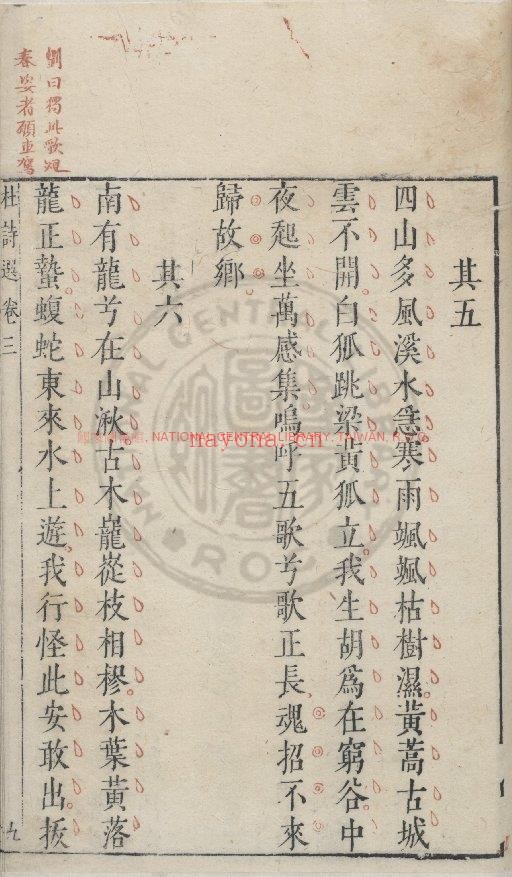 劉曰獨此歌迥
其五
四山多風溪水急寒雨颯颯枯樹濕黃蒿古城
雲不開白狐跳梁黃狐立我生胡為在窮谷中
夜起坐萬感集嗚呼五歌兮歌正長魂招不來
歸故鄉
其六
南有龍兮在山湫古木巃嵸枝相樛木葉黃落
龍正蟄蝮蛇東來水上遊我行怪此安敢出拔
杜詩選 卷三
九
NATIONAL CENTRAL LIBRARY, TAIWAN, R.O.C.
nayona.cn